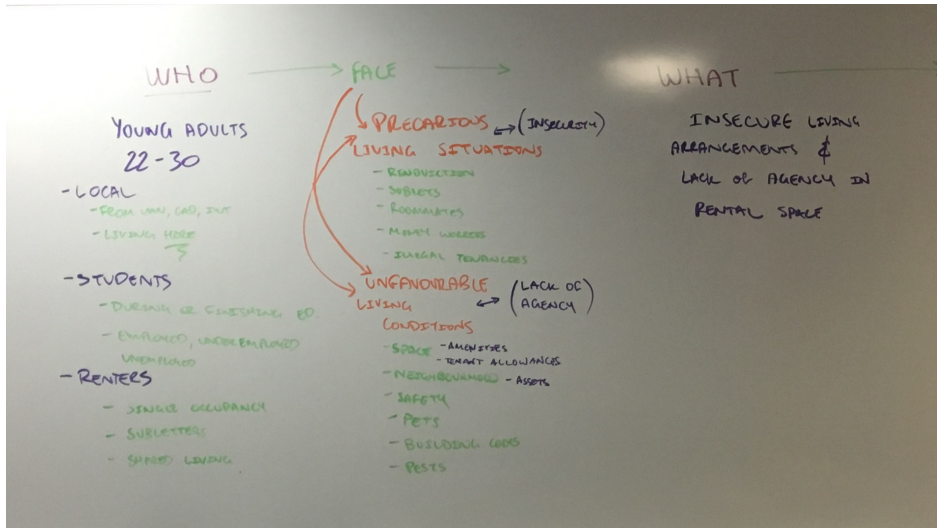 WHO → FACE → WHAT →
YOUNG ADULTS
22-30
- LOCAL
- FROM VAN, CAD, INT
- LIVING HERE
- STUDENTS
- DURING OR FINISHING ED.
- EMPLOYED, UNDEREMPLOYED
UNEMPLOYED
- RENTERS
- SINGLE OCCUPANCY
- SUBLETTERS
- SHARED LIVING
PRECARIOUS ↔ (INSECURITY)
LIVING SITUATIONS
- RENOVICTION
- SUBLETS
- ROOMMATES
- MONEY WORRIES
- ILLEGAL TENANCIES
UNFAVOURABLE
LIVING ↔ (LACK OF
AGENCY)
CONDITIONS
- SPACE - AMENITIES
- TENANT ALLOWANCES
- NEIGHBOURHOOD - ASSETS
- SAFETY
- PETS
- BUILDING CODES
- PESTS
INSECURE LIVING
ARRANGEMENTS &
LACK OF AGENCY IN
RENTAL SPACE